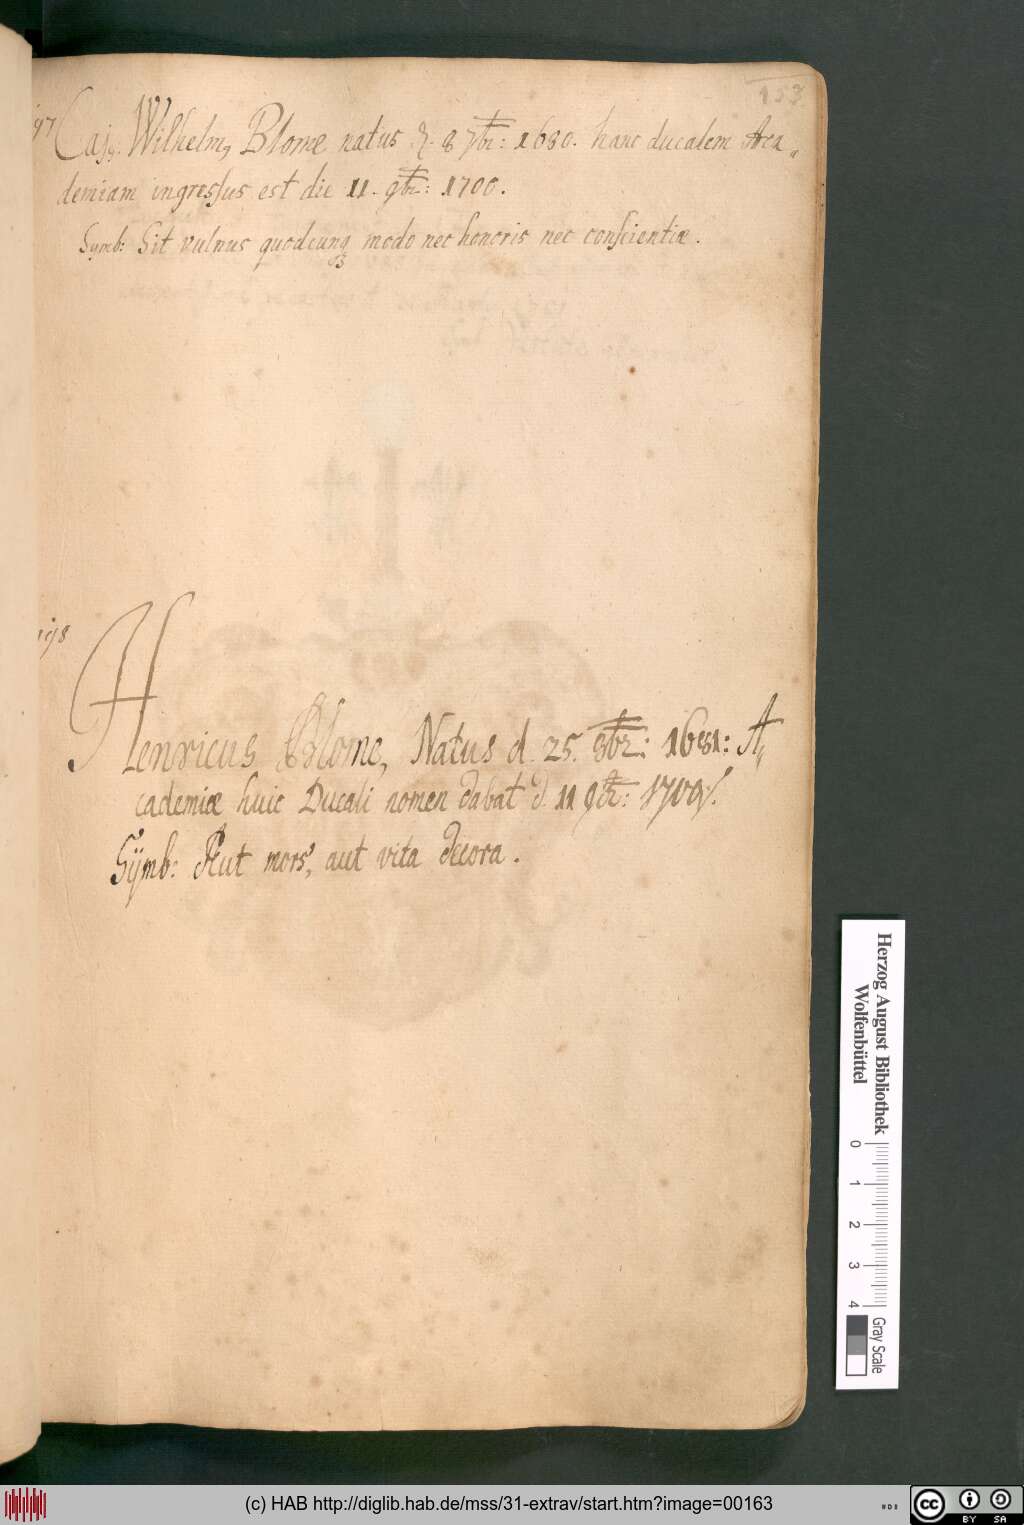 153
Wilhelm, Blome natus d. 8 7br: 1680. hanc ducalem Aca„
demiam ingressus est die 11. 9br: 1700.
Symb: Sit vulnus quodcunq modo nec honoris nec conscientiæ.
Henricus Blome, Natus d. 25. 8br: 1681: A„
cademiæ huic Ducali nomen dabat d. 11 9br: 1700.
Sÿmb: Aut mors, aut vita decora.
Herzog August Bibliothek
Wolfenbüttel
0 1 2 3 4
Gray Scale
(c) HAB http://diglib.hab.de/mss/31-extrav/start.htm?image=00163
cc BY SA